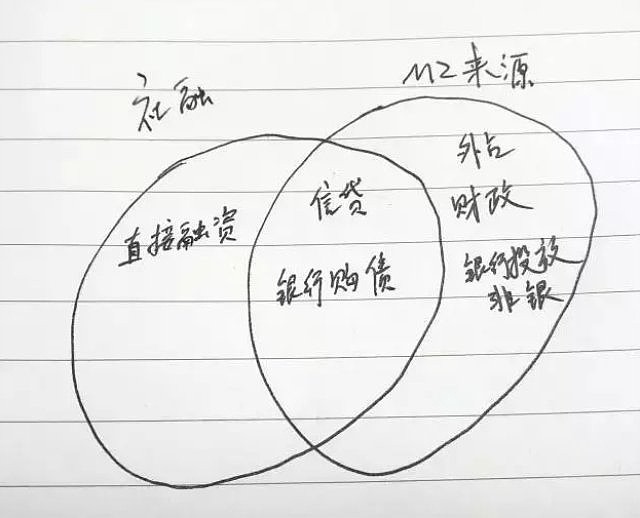 社融
M2来源
直接融资
信贷
银行购债
外占
财政
银行投放
非银